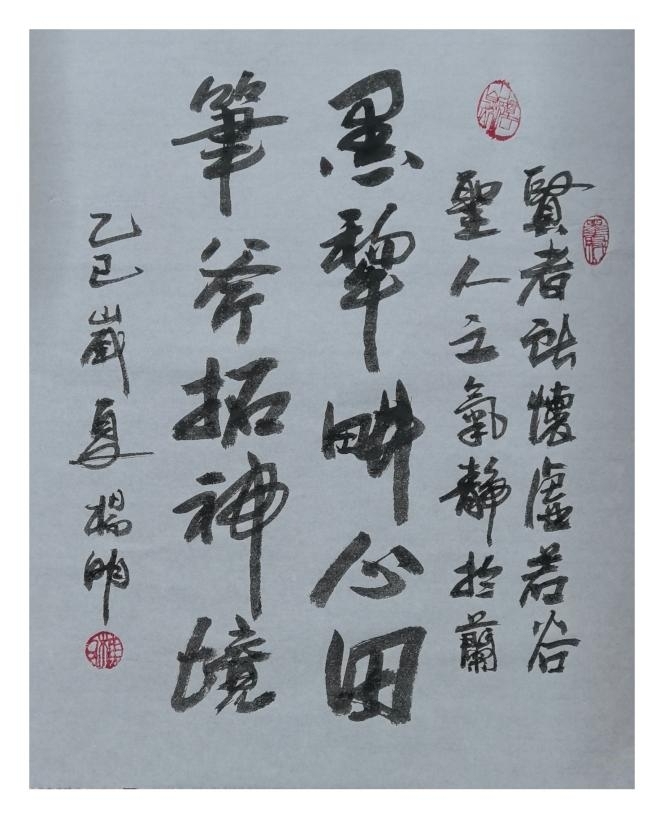 賢者胸懷虛若谷
聖人之氣靜於蘭
墨犂畊心田
筆斧拓神境
乙巳歲夏楊明